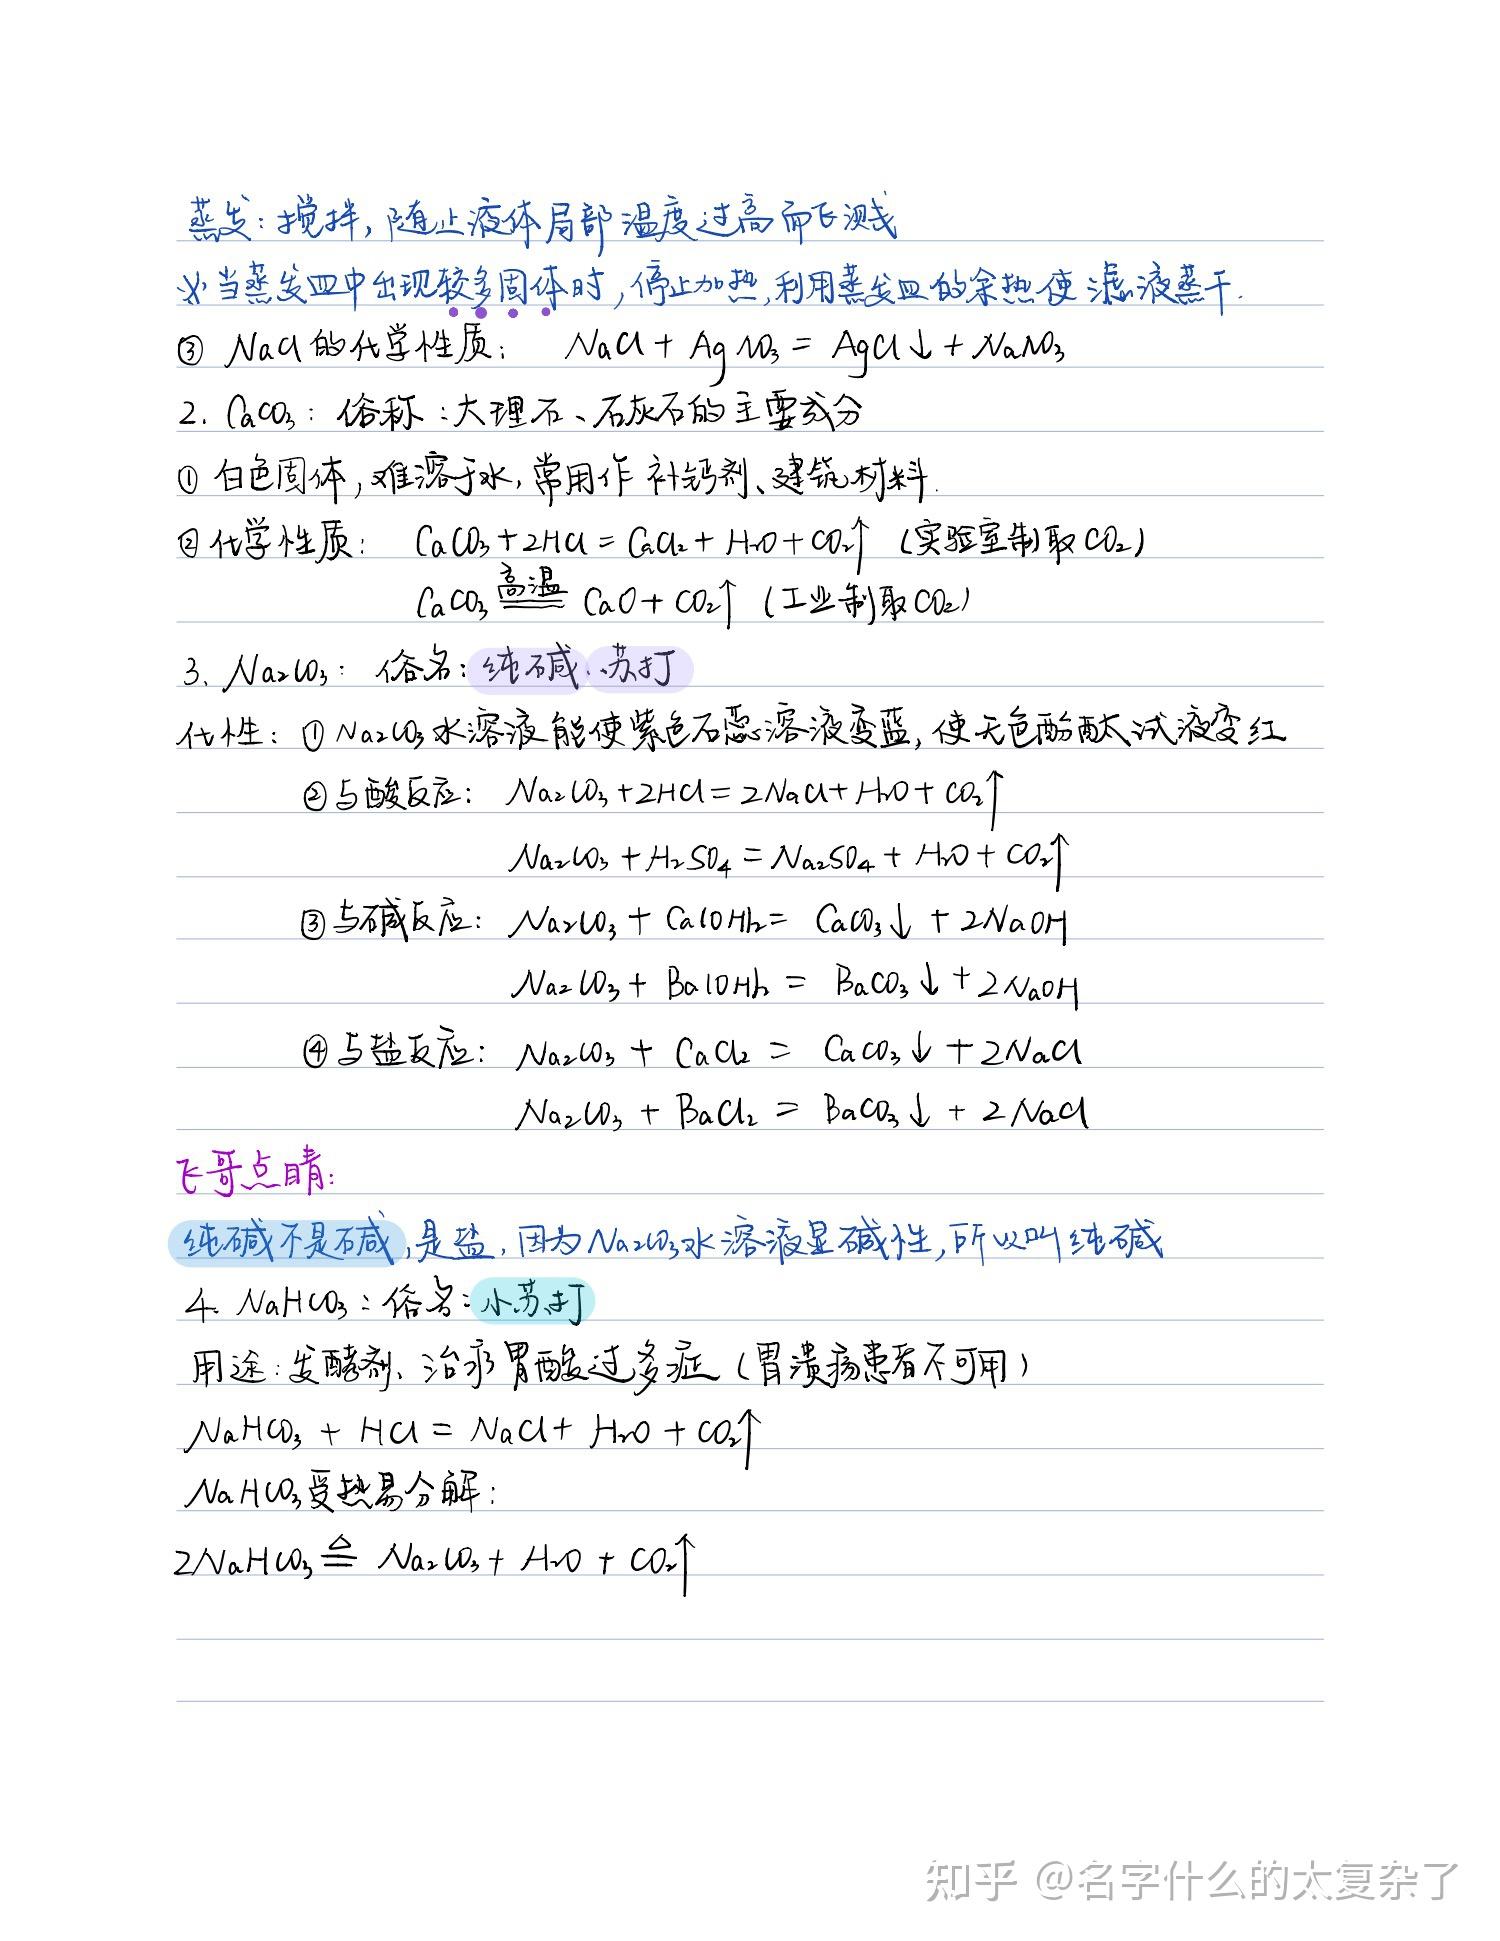 蒸发：搅拌，随止液体局部温度过高而飞溅
※当蒸发皿中出现较多固体时，停止加热，利用蒸发皿的余热使滤液蒸干.
③ NaCl的化学性质： NaCl + AgNO₃ = AgCl↓ + NaNO₃
2. CaCO₃：俗称：大理石、石灰石的主要成分
① 白色固体，难溶于水，常用作补钙剂、建筑材料.
② 化学性质： CaCO₃ + 2HCl = CaCl₂ + H₂O + CO₂↑ (实验室制取CO₂)
CaCO₃ 高温 CaO + CO₂↑ (工业制取CO₂)
3. Na₂CO₃： 俗名：纯碱、苏打
化性：① Na₂CO₃水溶液能使紫色石蕊溶液变蓝，使无色酚酞试液变红
②与酸反应： Na₂CO₃ + 2HCl = 2NaCl + H₂O + CO₂↑
Na₂CO₃ + H₂SO₄ = Na₂SO₄ + H₂O + CO₂↑
③与碱反应： Na₂CO₃ + Ca(OH)₂ = CaCO₃↓ + 2NaOH
Na₂CO₃ + Ba(OH)₂ = BaCO₃↓ + 2NaOH
④与盐反应： Na₂CO₃ + CaCl₂ = CaCO₃↓ + 2NaCl
Na₂CO₃ + BaCl₂ = BaCO₃↓ + 2NaCl
飞哥点睛：
纯碱不是碱，是盐，因为Na₂CO₃水溶液显碱性，所以叫纯碱
4. NaHCO₃：俗名：小苏打
用途：发酵剂、治疗胃酸过多症（胃溃疡患者不可用）
NaHCO₃ + HCl = NaCl + H₂O + CO₂↑
NaHCO₃受热易分解：
2NaHCO₃ ≜ Na₂CO₃ + H₂O + CO₂↑
知乎 @名字什么的太复杂了